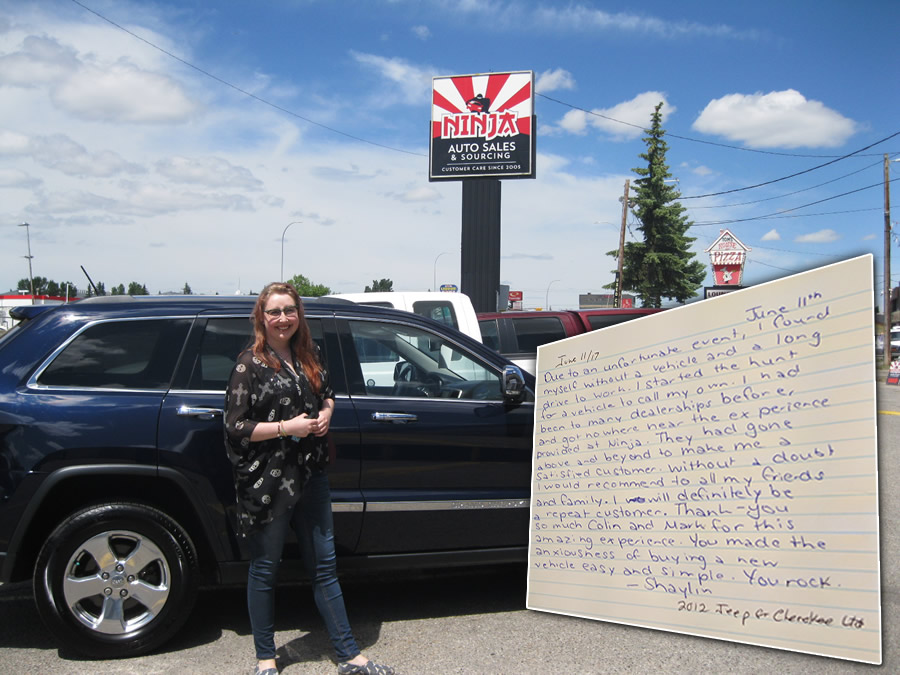 NINJA
AUTO SALES
& SOURCING
CUSTOMER CARE SINCE 2005
PIZZA
June 11/17
June 11th
Due to an unfortunate event, I found
myself without a vehicle and a long
drive to work. I started the hunt
for a vehicle to call my own. I had
been to many dealerships before,
and got no where near the experience
provided at Ninja. They had gone
above and beyond to make me a
Satisfied customer. Without a doubt
I would recommend to all my friends
and family. I will definitely be
a repeat customer. Thank-you
so much Colin and Mark for this
amazing experience. You made the
anxiousness of buying a new
vehicle easy and simple. You rock.
- Shaylin
2012 Jeep Gr Cherokee Ltd